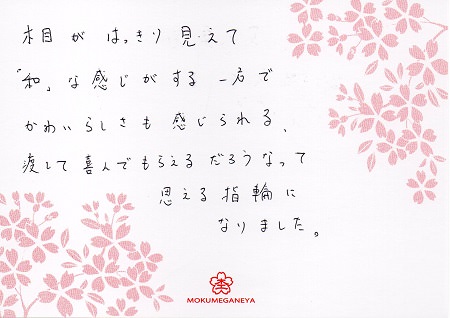 木目が はっきり 見えて
「和」な感じがする 一方で
かわいらしさも 感じられる、
渡して喜んでもらえるだろうなって
思える指輪に
なりました。
杢
MOKUMEGANEYA